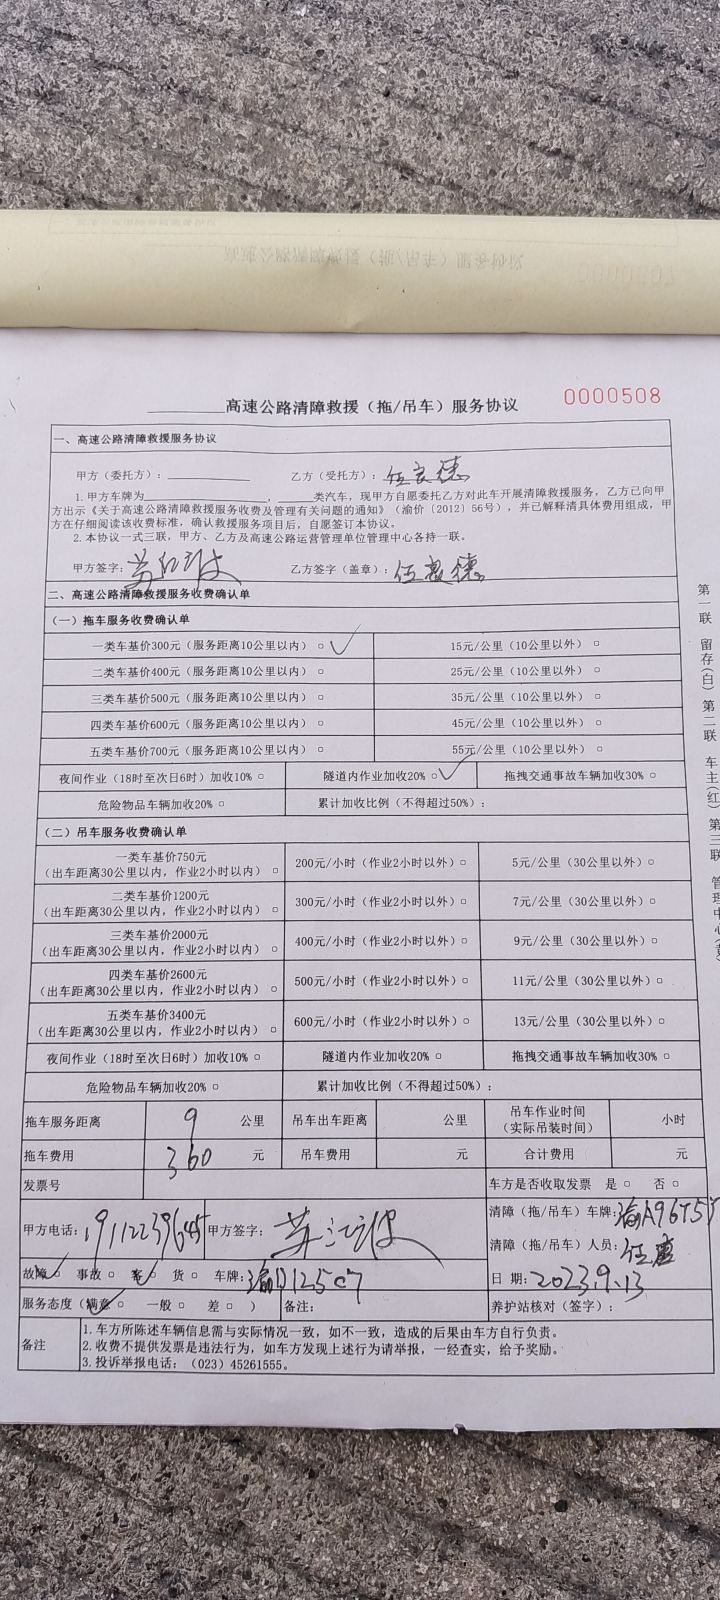 ________高速公路清障救援（拖/吊车）服务协议 0000508
一、高速公路清障救援服务协议
甲方（委托方）：________ 乙方（受托方）：伍良德
1.甲方车牌为________，____类汽车，现甲方自愿委托乙方对此车开展清障救援服务，乙方已向甲
方出示《关于高速公路清障救援服务收费及管理有关问题的通知》（渝价〔2012〕56号），并已解释清具体费用组成，甲
方在仔细阅读该收费标准，确认救援服务项目后，自愿签订本协议。
2.本协议一式三联，甲方、乙方及高速公路运营管理单位管理中心各持一联。
甲方签字： 乙方签字（盖章）：伍良德
二、高速公路清障救援服务收费确认单
（一）拖车服务收费确认单
一类车基价300元（服务距离10公里以内）□ ✓ 15元/公里（10公里以外）□
二类车基价400元（服务距离10公里以内）□ 25元/公里（10公里以外）□
三类车基价500元（服务距离10公里以内）□ 35元/公里（10公里以外）□
四类车基价600元（服务距离10公里以内）□ 45元/公里（10公里以外）□
五类车基价700元（服务距离10公里以内）□ 55元/公里（10公里以外）□
夜间作业（18时至次日6时）加收10% □ 隧道内作业加收20% □ ✓ 拖拽交通事故车辆加收30% □
危险物品车辆加收20% □ 累计加收比例（不得超过50%）：
（二）吊车服务收费确认单
一类车基价750元
（出车距离30公里以内，作业2小时以内）□ 200元/小时（作业2小时以外）□ 5元/公里（30公里以外）□
二类车基价1200元
（出车距离30公里以内，作业2小时以内）□ 300元/小时（作业2小时以外）□ 7元/公里（30公里以外）□
三类车基价2000元
（出车距离30公里以内，作业2小时以内）□ 400元/小时（作业2小时以外）□ 9元/公里（30公里以外）□
四类车基价2600元
（出车距离30公里以内，作业2小时以内）□ 500元/小时（作业2小时以外）□ 11元/公里（30公里以外）□
五类车基价3400元
（出车距离30公里以内，作业2小时以内）□ 600元/小时（作业2小时以外）□ 13元/公里（30公里以外）□
夜间作业（18时至次日6时）加收10% □ 隧道内作业加收20% □ 拖拽交通事故车辆加收30% □
危险物品车辆加收20% □ 累计加收比例（不得超过50%）：
拖车服务距离 9 公里 吊车出车距离 公里 吊车作业时间（实际吊装时间） 小时
拖车费用 360 元 吊车费用 元 合计费用 元
发票号 车方是否收取发票 是 □ 否 □
甲方电话：19112239645 甲方签字： 清障（拖/吊车）车牌：渝A96T57
清障（拖/吊车）人员：
故障 □ ✓ 事故 □ 客 □ ✓ 货 □ 车牌：渝D125C7 日 期：2023.9.13
服务态度（满意 □ ✓ 一般 □ 差 □ ） 备注： 养护站核对（签字）：
备注 1.车方所陈述车辆信息需与实际情况一致，如不一致，造成的后果由车方自行负责。
2.收费不提供发票是违法行为，如车方发现上述行为请举报，一经查实，给予奖励。
3.投诉举报电话：（023）45261555。
第一联 留存(白) 第二联 车主(红) 第三联 管理中心(黄)